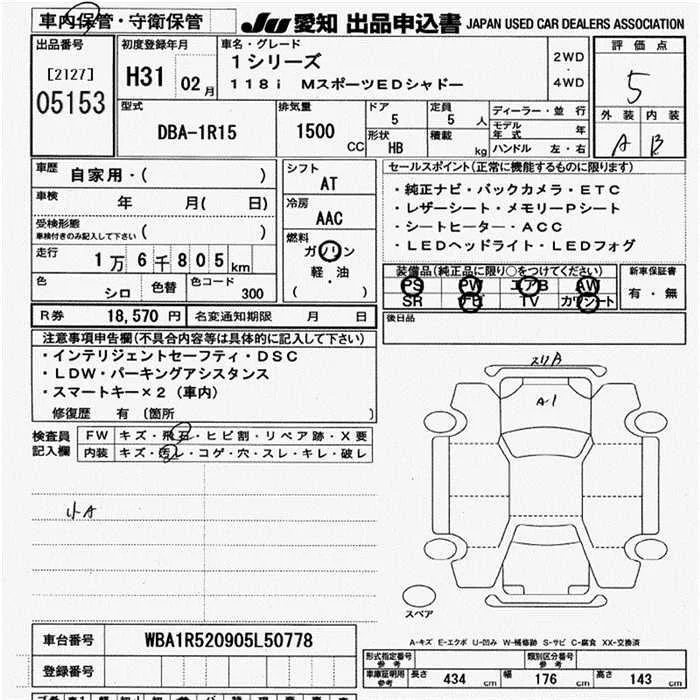 車内保管・守衛保管
JU 愛知 出品申込書 JAPAN USED CAR DEALERS ASSOCIATION
出品番号
[2127]
05153
初度登録年月
H31 02月
車名・グレード
1シリーズ
118i MスポーツEDシャドー
2WD
・
4WD
評価点
5
外装 内装
A B
型式
DBA-1R15
排気量
1500 CC
ドア
5
定員
5 人
形状
HB
積載
kg
ディーラー・並行
モデル年式 年
ハンドル 左・右
車歴
自家用・( )
車検
年 月( 日)
受検形態
車検付きのみ記入して下さい ( )
走行
1万6千805km
色 シロ 色替 色コード 300
シフト
AT
冷房
AAC
燃料
ガソリン
軽・油
( )
R券 18,570円 名変通知期限 月 日
セールスポイント(正常に機能するものに限ります)
・純正ナビ・バックカメラ・ETC
・レザーシート・メモリーPシート
・シートヒーター・ACC
・LEDヘッドライト・LEDフォグ
装備品(純正品に限り○をつけてください)
PS PW エアB AW
SR ナビ TV カワシート
新車保証書
有・無
後日品
注意事項申告欄(不具合内容等は具体的に記入して下さい)
・インテリジェントセーフティ・DSC
・LDW・パーキングアシスタンス
・スマートキー×2(車内)
修復歴 有 〔箇所 〕
検査員記入欄
FW キズ・飛石・ヒビ割・リペア跡・X要
内装 キズ・汚レ・コゲ・穴・スレ・キレ・破レ
小A
スリB
A-1
スペア
A-キズ E-エクボ U-凹み W-補修跡 S-サビ C-腐食 XX-交換済
車台番号 WBA1R520905L50778
登録番号
型式指定番号 参考 類別区分番号 参考
車庫証明用参考 長さ 434 cm 幅 176 cm 高さ 143 cm